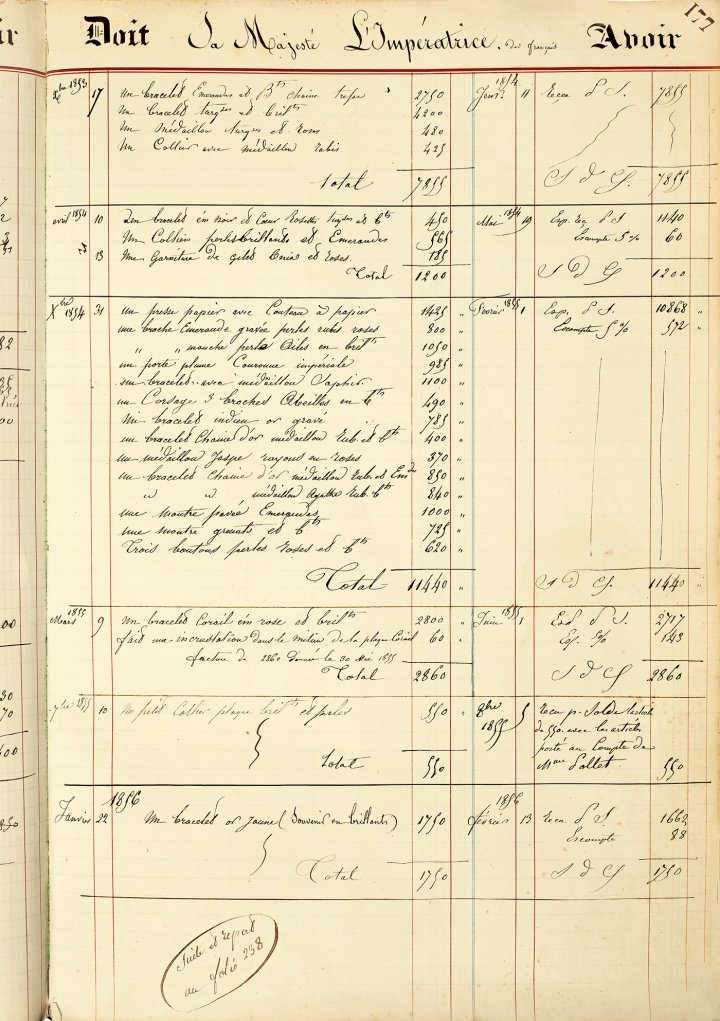 177
Doit Sa Majesté L'Impératrice. des français Avoir
Xbre 1853 17 Un bracelet Emeraudes et Bts chaine trèfle 2750 Janvr 1854 11 Recu P S. 7855
Un bracelet turqses et brillts 4200
Un Médaillon turqses et roses 480
Un Collier avec médaillon rubis 425
Total 7855 S D C. 7855
avril 1854 10 Un bracelet ém noir et Cœur Rosettes turqses et bts 450 Mai 1854 19 Esp. P S 1140
Un Colliers perles brillants et Emeraudes 565 Escompte 5 % 60
13 Une Garniture de gilet Onix et roses. 185
Total 1200 S D C 1200
Xbre 1854 31 un presse papier avec Couteau à papier 1425 " Février 1855 1 Esp. P S. 10868 "
une broche Emeraude gravée perles rubis roses 800 " Escompte 5 % 572 "
" " mouche perle Ailes en brillts 1050 "
un porte plume Couronne impériale 985 "
un bracelet avec médaillon Saphir 1100 "
un Corsage 3 broches Abeilles en bts 490 "
Un bracelet indien or gravé 785 "
un bracelet Chaine d'or médaillon Rub. et bts 400 "
un médaillon Jaspe rayons en roses 370 "
un bracelet Chaine d'or médaillon Rub. et Emdes 850 "
" " médaillon Agathe Rub. bts 840 "
une montre pavée Emeraudes 1000 "
une montre grenats et bts 725 "
Trois boutons perles roses et bts 620 "
Total 11440 " S D C. 11440 "
Mars 1855 9 Un bracelet Corail ém rose et brillts 2800 " Juin 1855 1 P S. 2717
fait une incrustation dans le milieu de la plaque Corail 60 " 5 % 143
facture de 2860 Donnée le 30 Mai 1855
Total 2860 S D C 2860
1855 10 Un petit Collier plaque brillts et perles 550 " 8bre 1855 5 Recu p. Solde
de 550. avec les articles
porté au Compte de
Mme Pollet.
Total 550 550
Janvier 1856 22 Un bracelet or Jaune (Souvenir en brillants) 1750 février 1856 13 Recu P S 1662
Escompte 88
Total 1750 S D C 1750
Suite et report
au folio 238